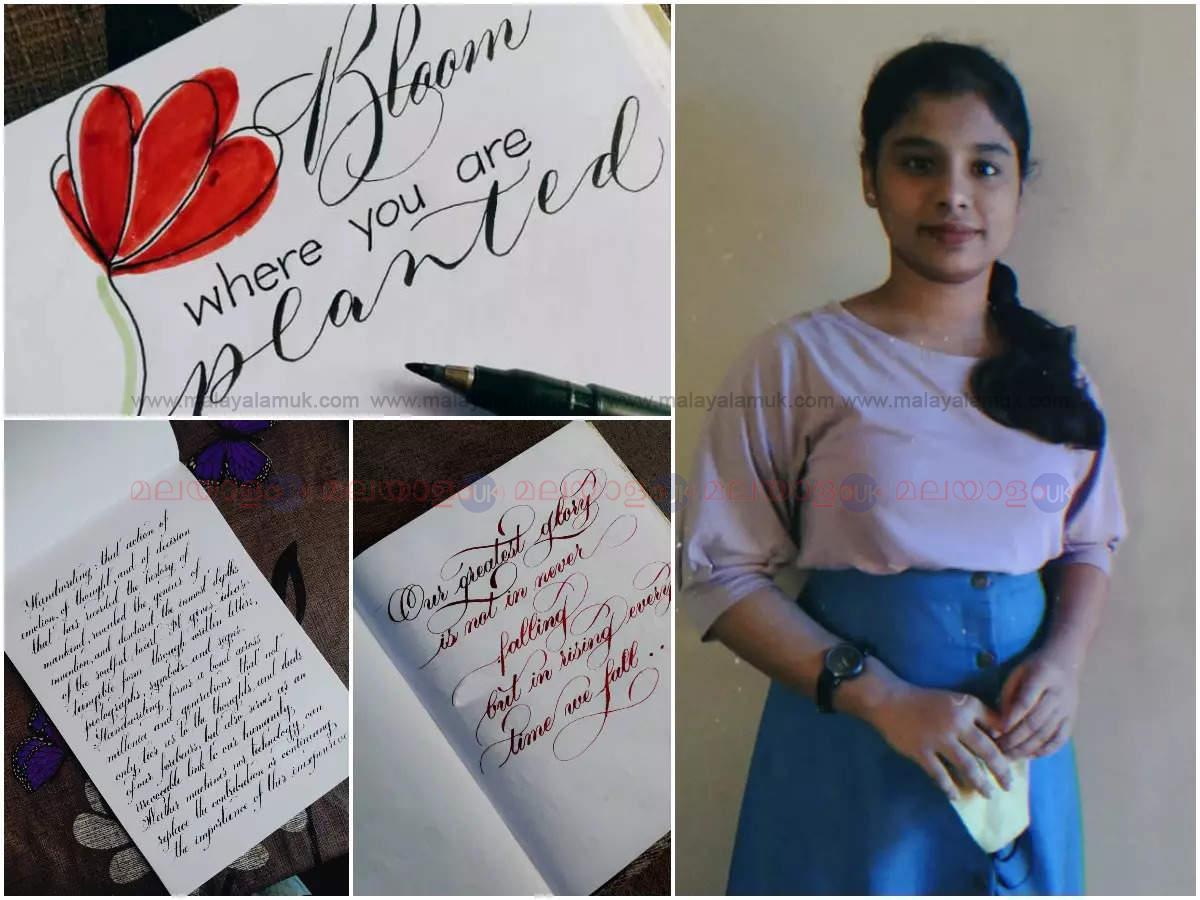 Bloom
where you are
planted
www.malayalamuk.com www.malayalamuk.com www.malayalamuk.com www.malayalamuk.com
മലയാളം UK മലയാളം UK മലയാളം UK മലയാളം UK മലയാളം UK
Handwriting - that action of
emotion, of thought, and of decision
that has recorded the history of
mankind, revealed the genius of
invention, and disclosed the inmost depths
of the soulful heart. It gives ideas
tangible form through written letters,
pictographs, symbols and signs.
Handwriting forms a bond across
millenia and generations that not
only ties us to the thoughts and deeds
of our forebears but also serves as an
irrevocable link to our humanity.
Neither machines nor technology can
replace the contribution or continuing
the importance of this inexpensive
Our greatest glory
is not in never
falling
but in rising every
time we fall ...